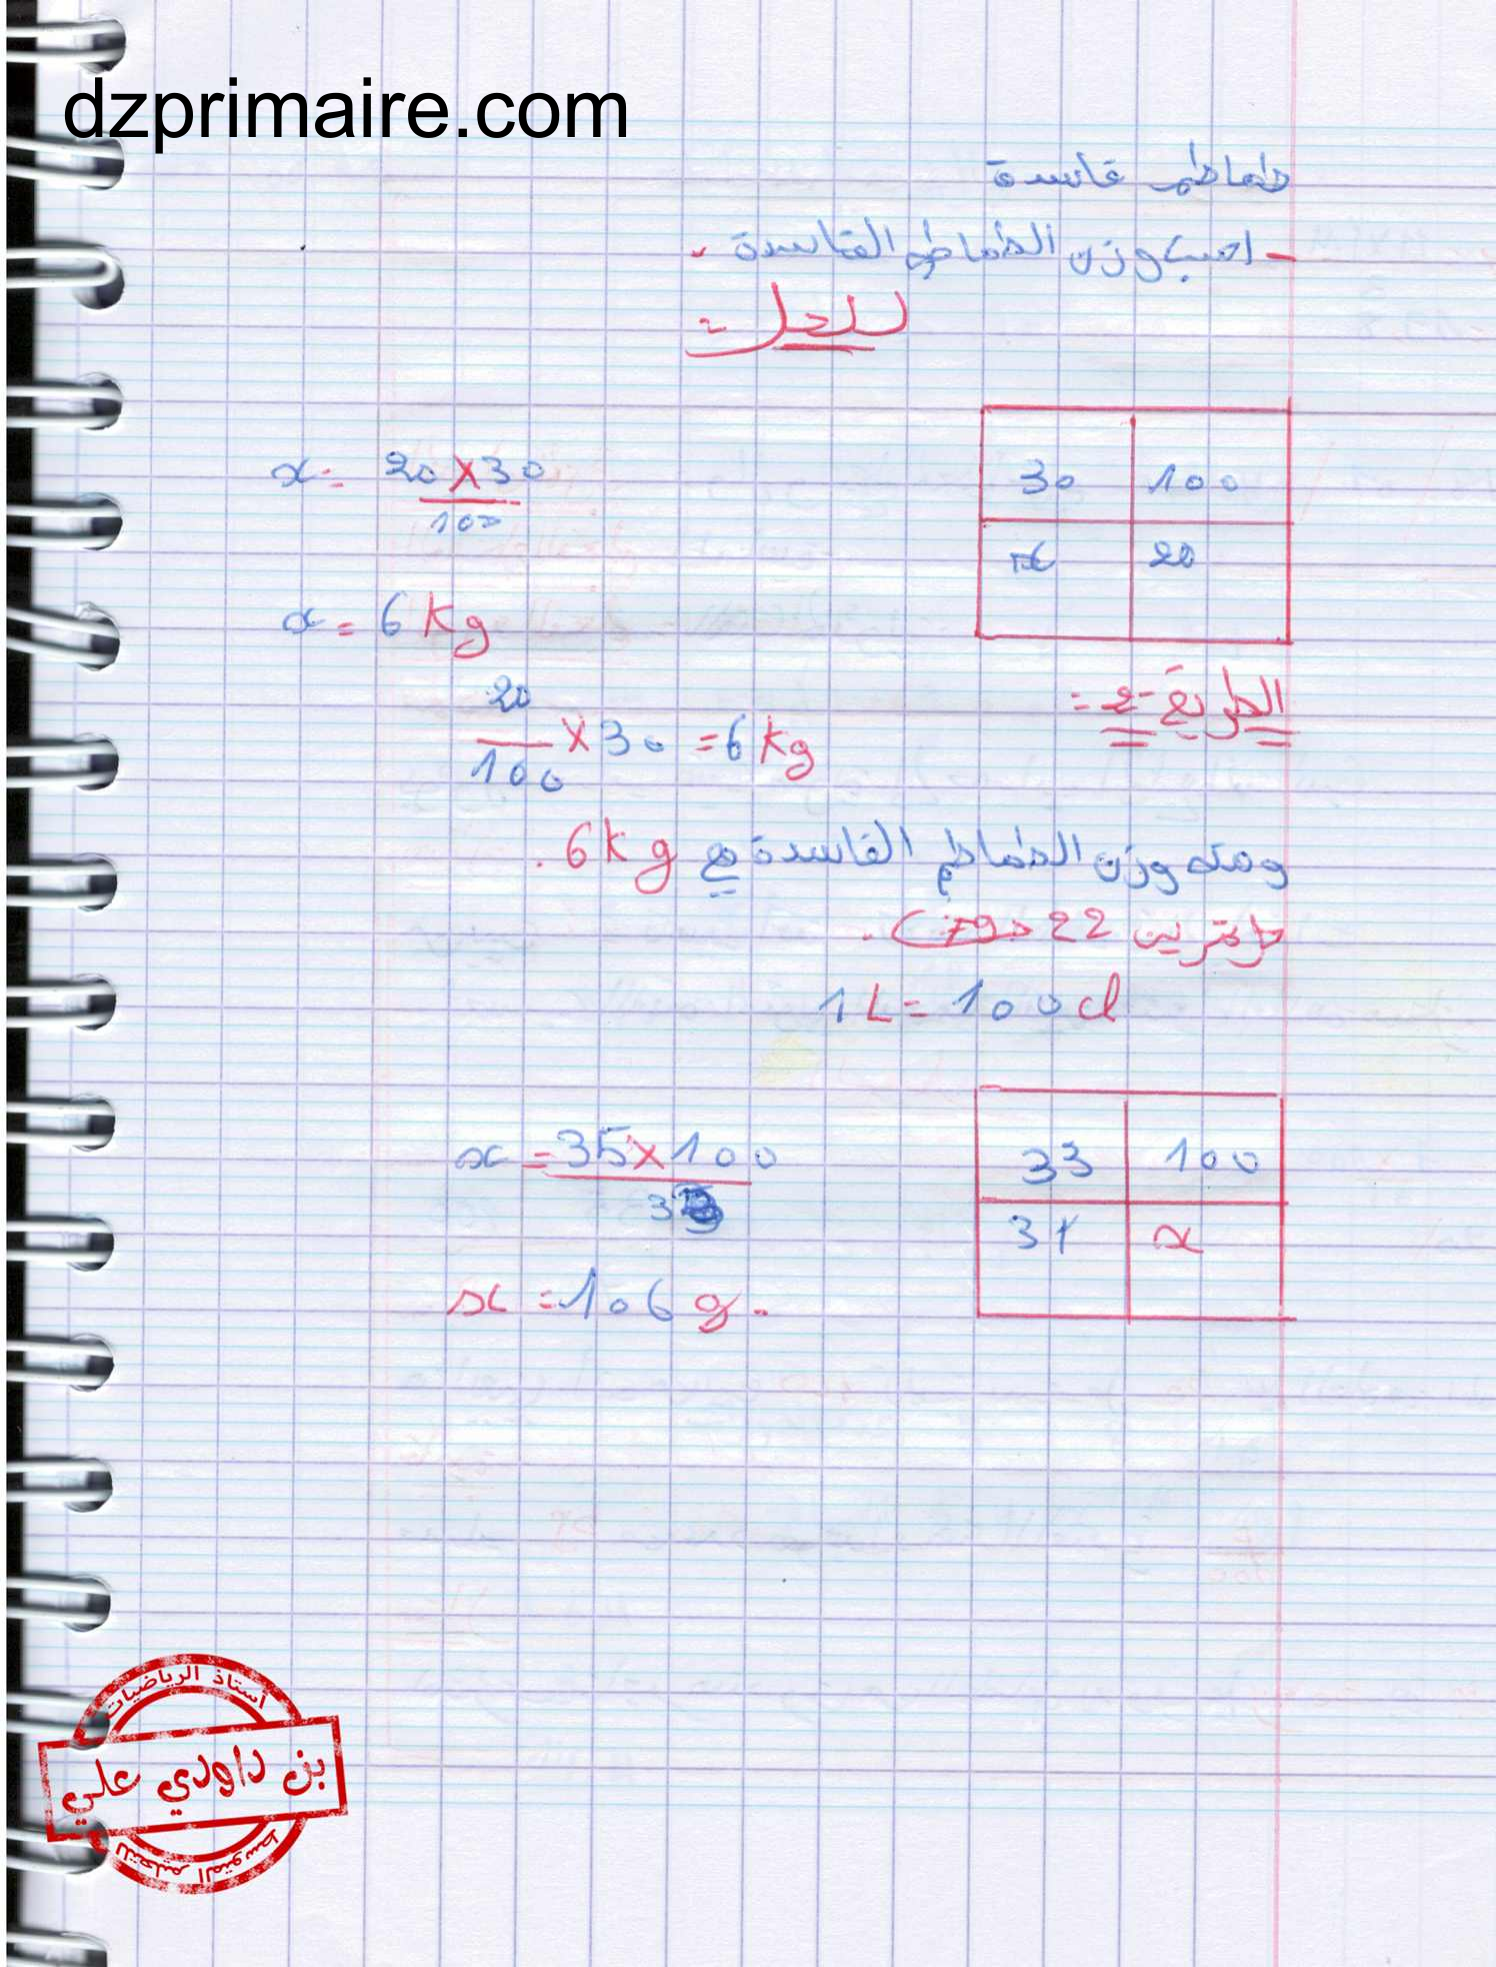 dzprimaire.com
طماطم فاسدة
- احسب وزن الطماطم الفاسدة .
الحل :
30 100
x 20
x = 20 X 30
100
x = 6 Kg
الطريقة 2 :
20
100 X 30 = 6 Kg
ومنه وزن الطماطم الفاسدة هو 6 Kg .
تمرين 22 ص 79 .
1 L = 100 cl
33 100
31 x
x = 35 x 100
33
x = 106 g .
أستاذ الرياضيات
بن داودي علي
للتعليم المتوسط